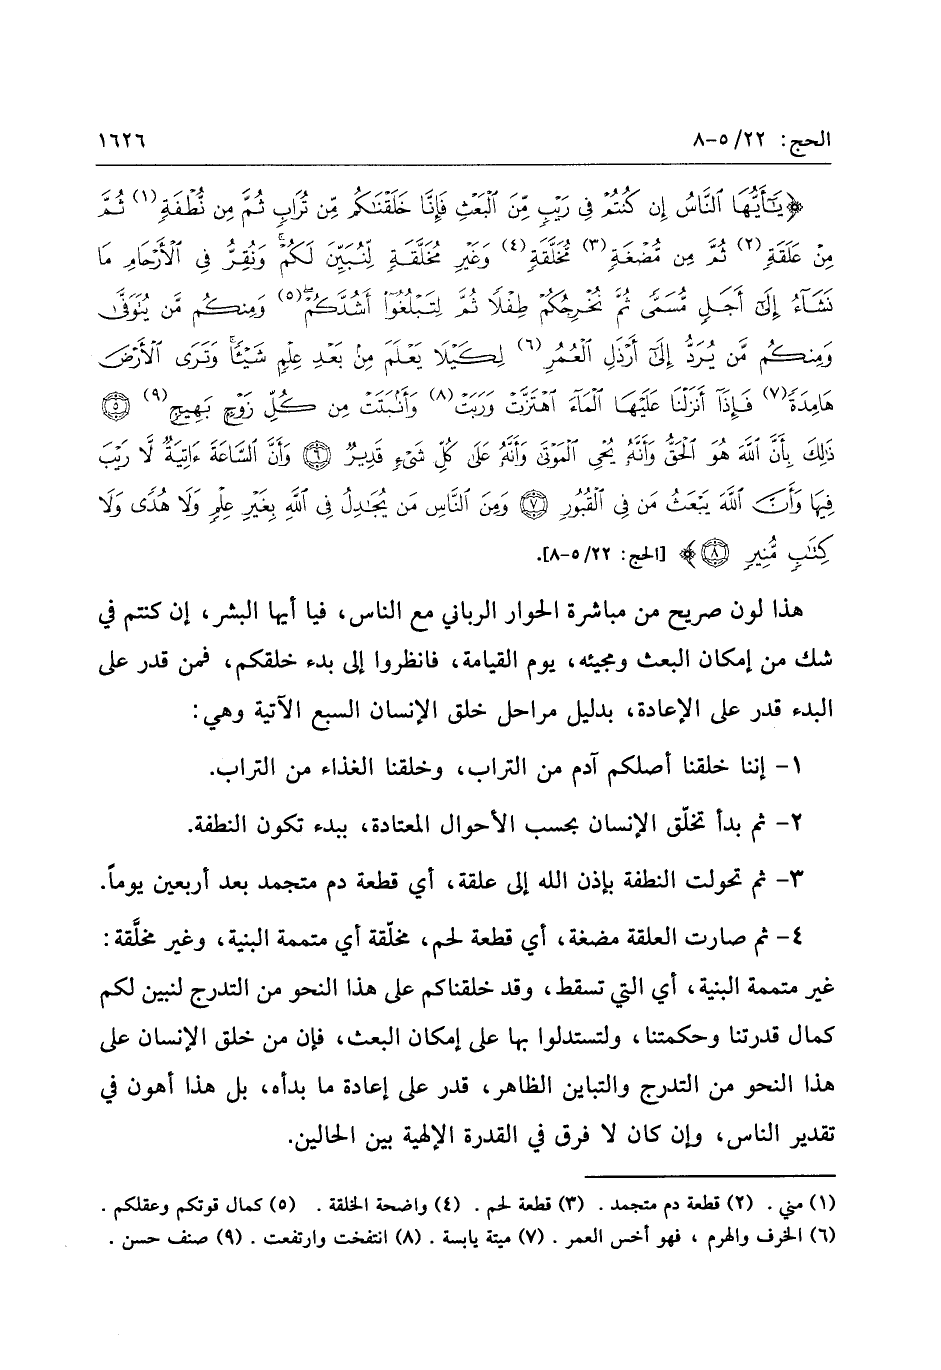 الحج: ٢٢/ ٥-٨
١٦٢٦
﴿يَٰٓأَيُّهَا ٱلنَّاسُ إِن كُنتُمۡ فِي رَيۡبٖ مِّنَ ٱلۡبَعۡثِ فَإِنَّا خَلَقۡنَٰكُم مِّن تُرَابٖ ثُمَّ مِن نُّطۡفَةٖ(١) ثُمَّ
مِنۡ عَلَقَةٖ(٢) ثُمَّ مِن مُّضۡغَةٖ(٣) مُّخَلَّقَةٖ(٤) وَغَيۡرِ مُخَلَّقَةٖ لِّنُبَيِّنَ لَكُمۡۚ وَنُقِرُّ فِي ٱلۡأَرۡحَامِ مَا
نَشَآءُ إِلَىٰٓ أَجَلٖ مُّسَمّٗى ثُمَّ نُخۡرِجُكُمۡ طِفۡلٗا ثُمَّ لِتَبۡلُغُوٓاْ أَشُدَّكُمۡۖ(٥) وَمِنكُم مَّن يُتَوَفَّىٰ
وَمِنكُم مَّن يُرَدُّ إِلَىٰٓ أَرۡذَلِ ٱلۡعُمُرِ(٦) لِكَيۡلَا يَعۡلَمَ مِنۢ بَعۡدِ عِلۡمٖ شَيۡـٔٗاۚ وَتَرَى ٱلۡأَرۡضَ
هَامِدَةٗ(٧) فَإِذَآ أَنزَلۡنَا عَلَيۡهَا ٱلۡمَآءَ ٱهۡتَزَّتۡ وَرَبَتۡ(٨) وَأَنۢبَتَتۡ مِن كُلِّ زَوۡجِۭ بَهِيجٖ(٩) ٥
ذَٰلِكَ بِأَنَّ ٱللَّهَ هُوَ ٱلۡحَقُّ وَأَنَّهُۥ يُحۡيِ ٱلۡمَوۡتَىٰ وَأَنَّهُۥ عَلَىٰ كُلِّ شَيۡءٖ قَدِيرٞ ٦ وَأَنَّ ٱلسَّاعَةَ ءَاتِيَةٞ لَّا رَيۡبَ
فِيهَا وَأَنَّ ٱللَّهَ يَبۡعَثُ مَن فِي ٱلۡقُبُورِ ٧ وَمِنَ ٱلنَّاسِ مَن يُجَٰدِلُ فِي ٱللَّهِ بِغَيۡرِ عِلۡمٖ وَلَا هُدٗى وَلَا
كِتَٰبٖ مُّنِيرٖ ٨﴾ [الحج: ٢٢/ ٥-٨].
هذا لون صريح من مباشرة الحوار الرباني مع الناس، فيا أيها البشر، إن كنتم في
شك من إمكان البعث ومجيئه، يوم القيامة، فانظروا إلى بدء خلقكم، فمن قدر على
البدء قدر على الإعادة، بدليل مراحل خلق الإنسان السبع الآتية وهي:
١- إننا خلقنا أصلكم آدم من التراب، وخلقنا الغذاء من التراب.
٢- ثم بدأ تخلّق الإنسان بحسب الأحوال المعتادة، ببدء تكون النطفة.
٣- ثم تحولت النطفة بإذن الله إلى علقة، أي قطعة دم متجمد بعد أربعين يوماً.
٤- ثم صارت العلقة مضغة، أي قطعة لحم، مخلّقة أي متممة البنية، وغير مخلَّقة:
غير متممة البنية، أي التي تسقط، وقد خلقناكم على هذا النحو من التدرج لنبين لكم
كمال قدرتنا وحكمتنا، ولتستدلوا بها على إمكان البعث، فإن من خلق الإنسان على
هذا النحو من التدرج والتباين الظاهر، قدر على إعادة ما بدأه، بل هذا أهون في
تقدير الناس، وإن كان لا فرق في القدرة الإلهية بين الحالين.
(١) مني. (٢) قطعة دم متجمد. (٣) قطعة لحم. (٤) واضحة الخلقة. (٥) كمال قوتكم وعقلكم.
(٦) الخرف والهرم، فهو أخس العمر. (٧) ميتة يابسة. (٨) انتفخت وارتفعت. (٩) صنف حسن.